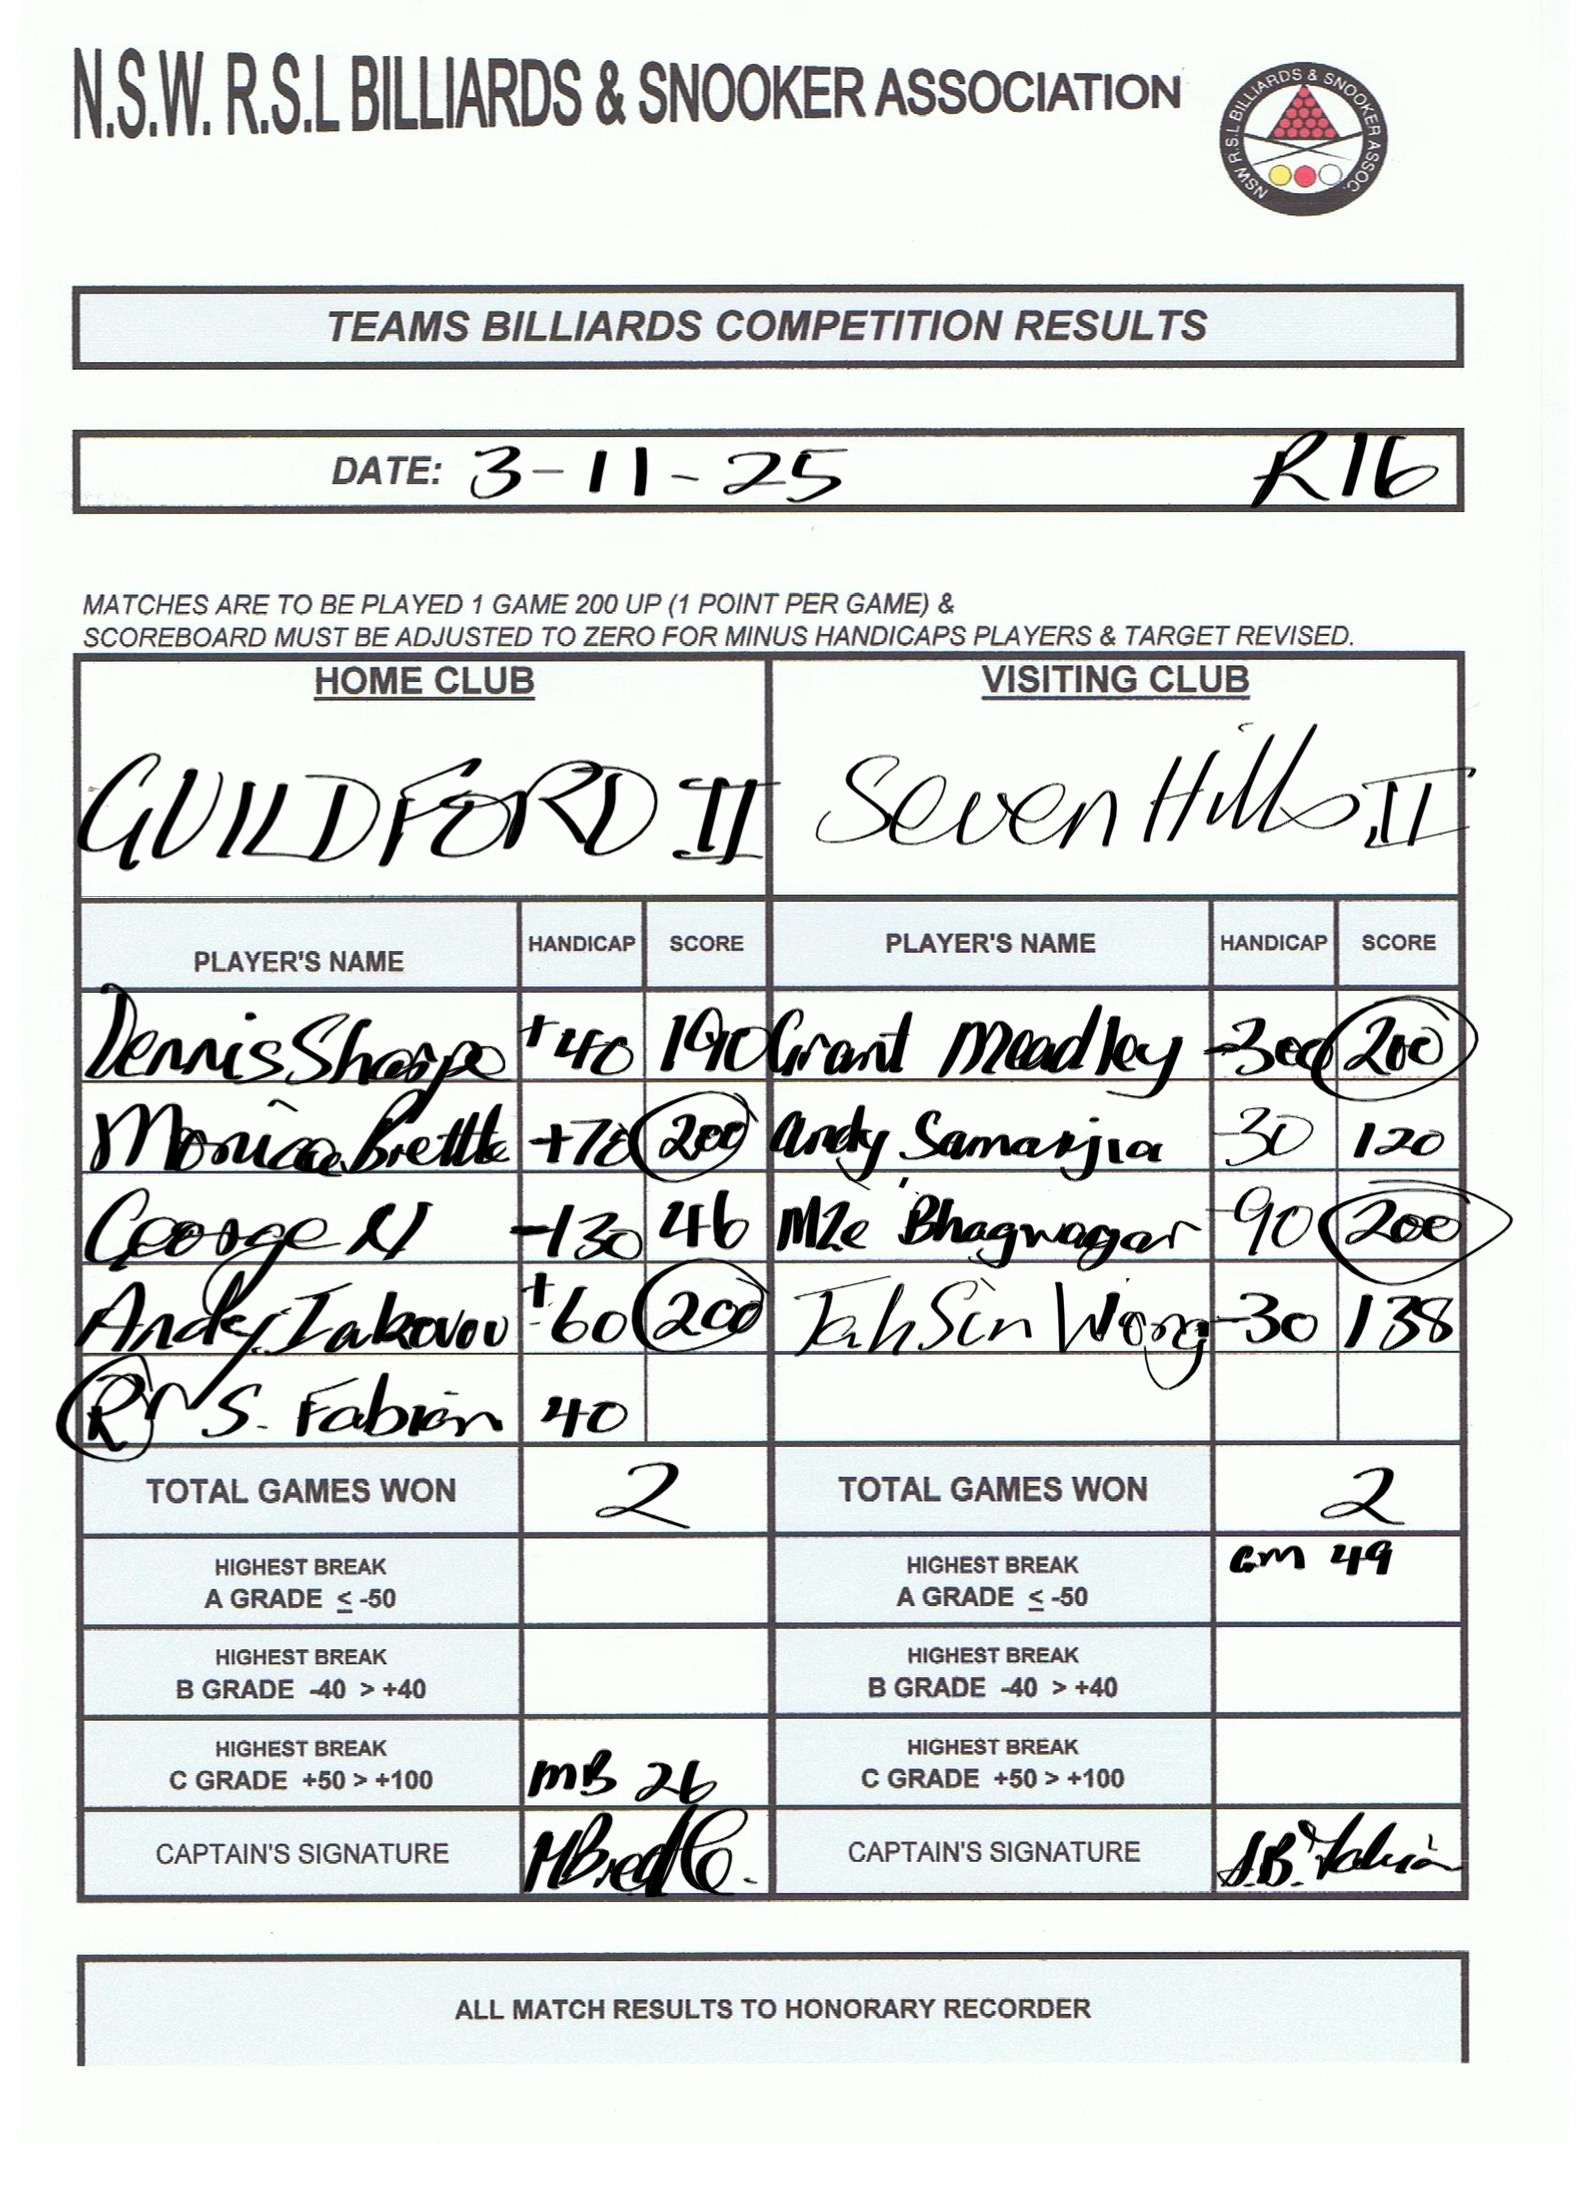 N.S.W. R.S.L BILLIARDS & SNOOKER ASSOCIATION
NSW R.S.L BILLIARDS & SNOOKER ASSOC.
TEAMS BILLIARDS COMPETITION RESULTS
DATE: 3-11-25 R16
MATCHES ARE TO BE PLAYED 1 GAME 200 UP (1 POINT PER GAME) &
SCOREBOARD MUST BE ADJUSTED TO ZERO FOR MINUS HANDICAPS PLAYERS & TARGET REVISED.
HOME CLUB VISITING CLUB
GUILDFORD II Seven Hills II
PLAYER'S NAME HANDICAP SCORE PLAYER'S NAME HANDICAP SCORE
Dennis Sharpe +40 190 Grant Meadley -300 200
Monica Brettle +70 200 Andy Samarjia -30 120
George N -130 46 Mze Bhagwagar -90 200
Andy Iakovou +60 200 Tah Sin Wong -30 138
R S. Fabian 40
TOTAL GAMES WON 2 TOTAL GAMES WON 2
HIGHEST BREAK
A GRADE ≤ -50
HIGHEST BREAK
A GRADE ≤ -50
GM 49
HIGHEST BREAK
B GRADE -40 > +40
HIGHEST BREAK
B GRADE -40 > +40
HIGHEST BREAK
C GRADE +50 > +100
MB 26
HIGHEST BREAK
C GRADE +50 > +100
CAPTAIN'S SIGNATURE CAPTAIN'S SIGNATURE
ALL MATCH RESULTS TO HONORARY RECORDER